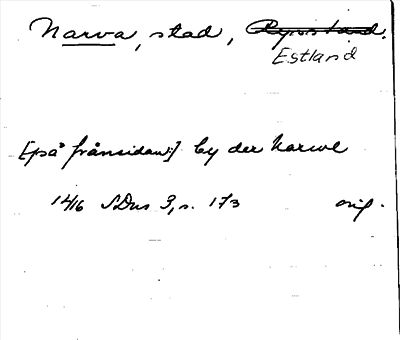 Narva, stad, Ryssland.
Estland
[på frånsidan:] by der Narwe
1416 SDns 3, s. 173 orig.